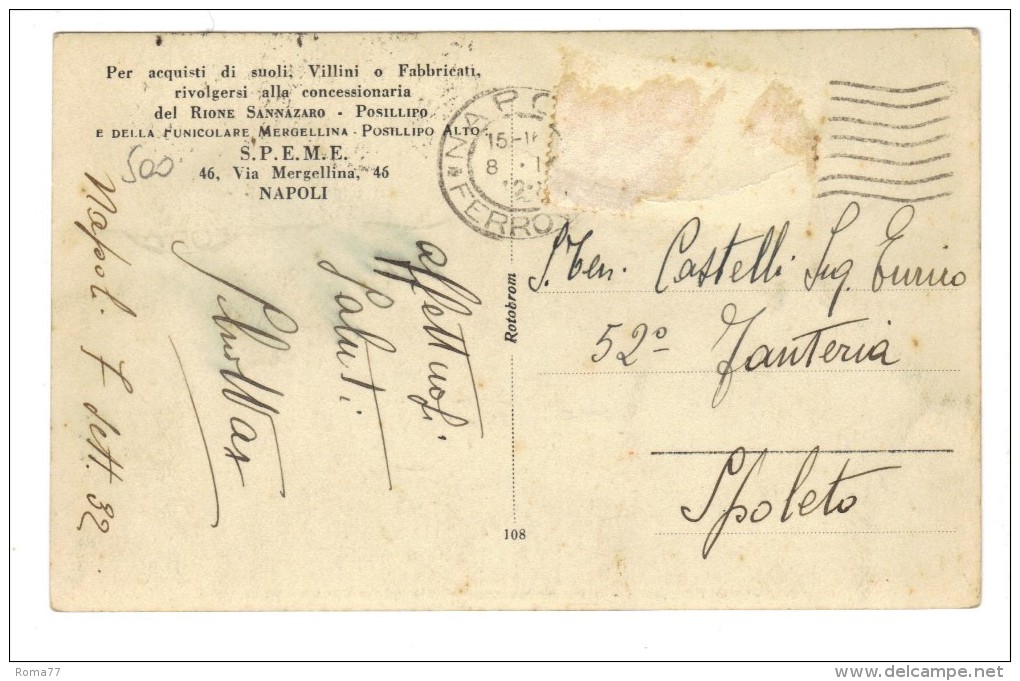 Per acquisti di suoli, Villini o Fabbricati,
rivolgersi alla concessionaria
del RIONE SANNAZARO - POSILLIPO
E DELLA FUNICOLARE MERGELLINA - POSILLIPO ALTO
S.P.E.M.E.
46, Via Mergellina, 46
NAPOLI
500
Napoli 7 sett. 32
affettuosi
saluti
NA P.C
15-1
8
FERRO
Rotobrom
108
S. Ten. Castelli Sig. Enrico
52º Fanteria
Spoleto
Roma77
www.delcampe.net